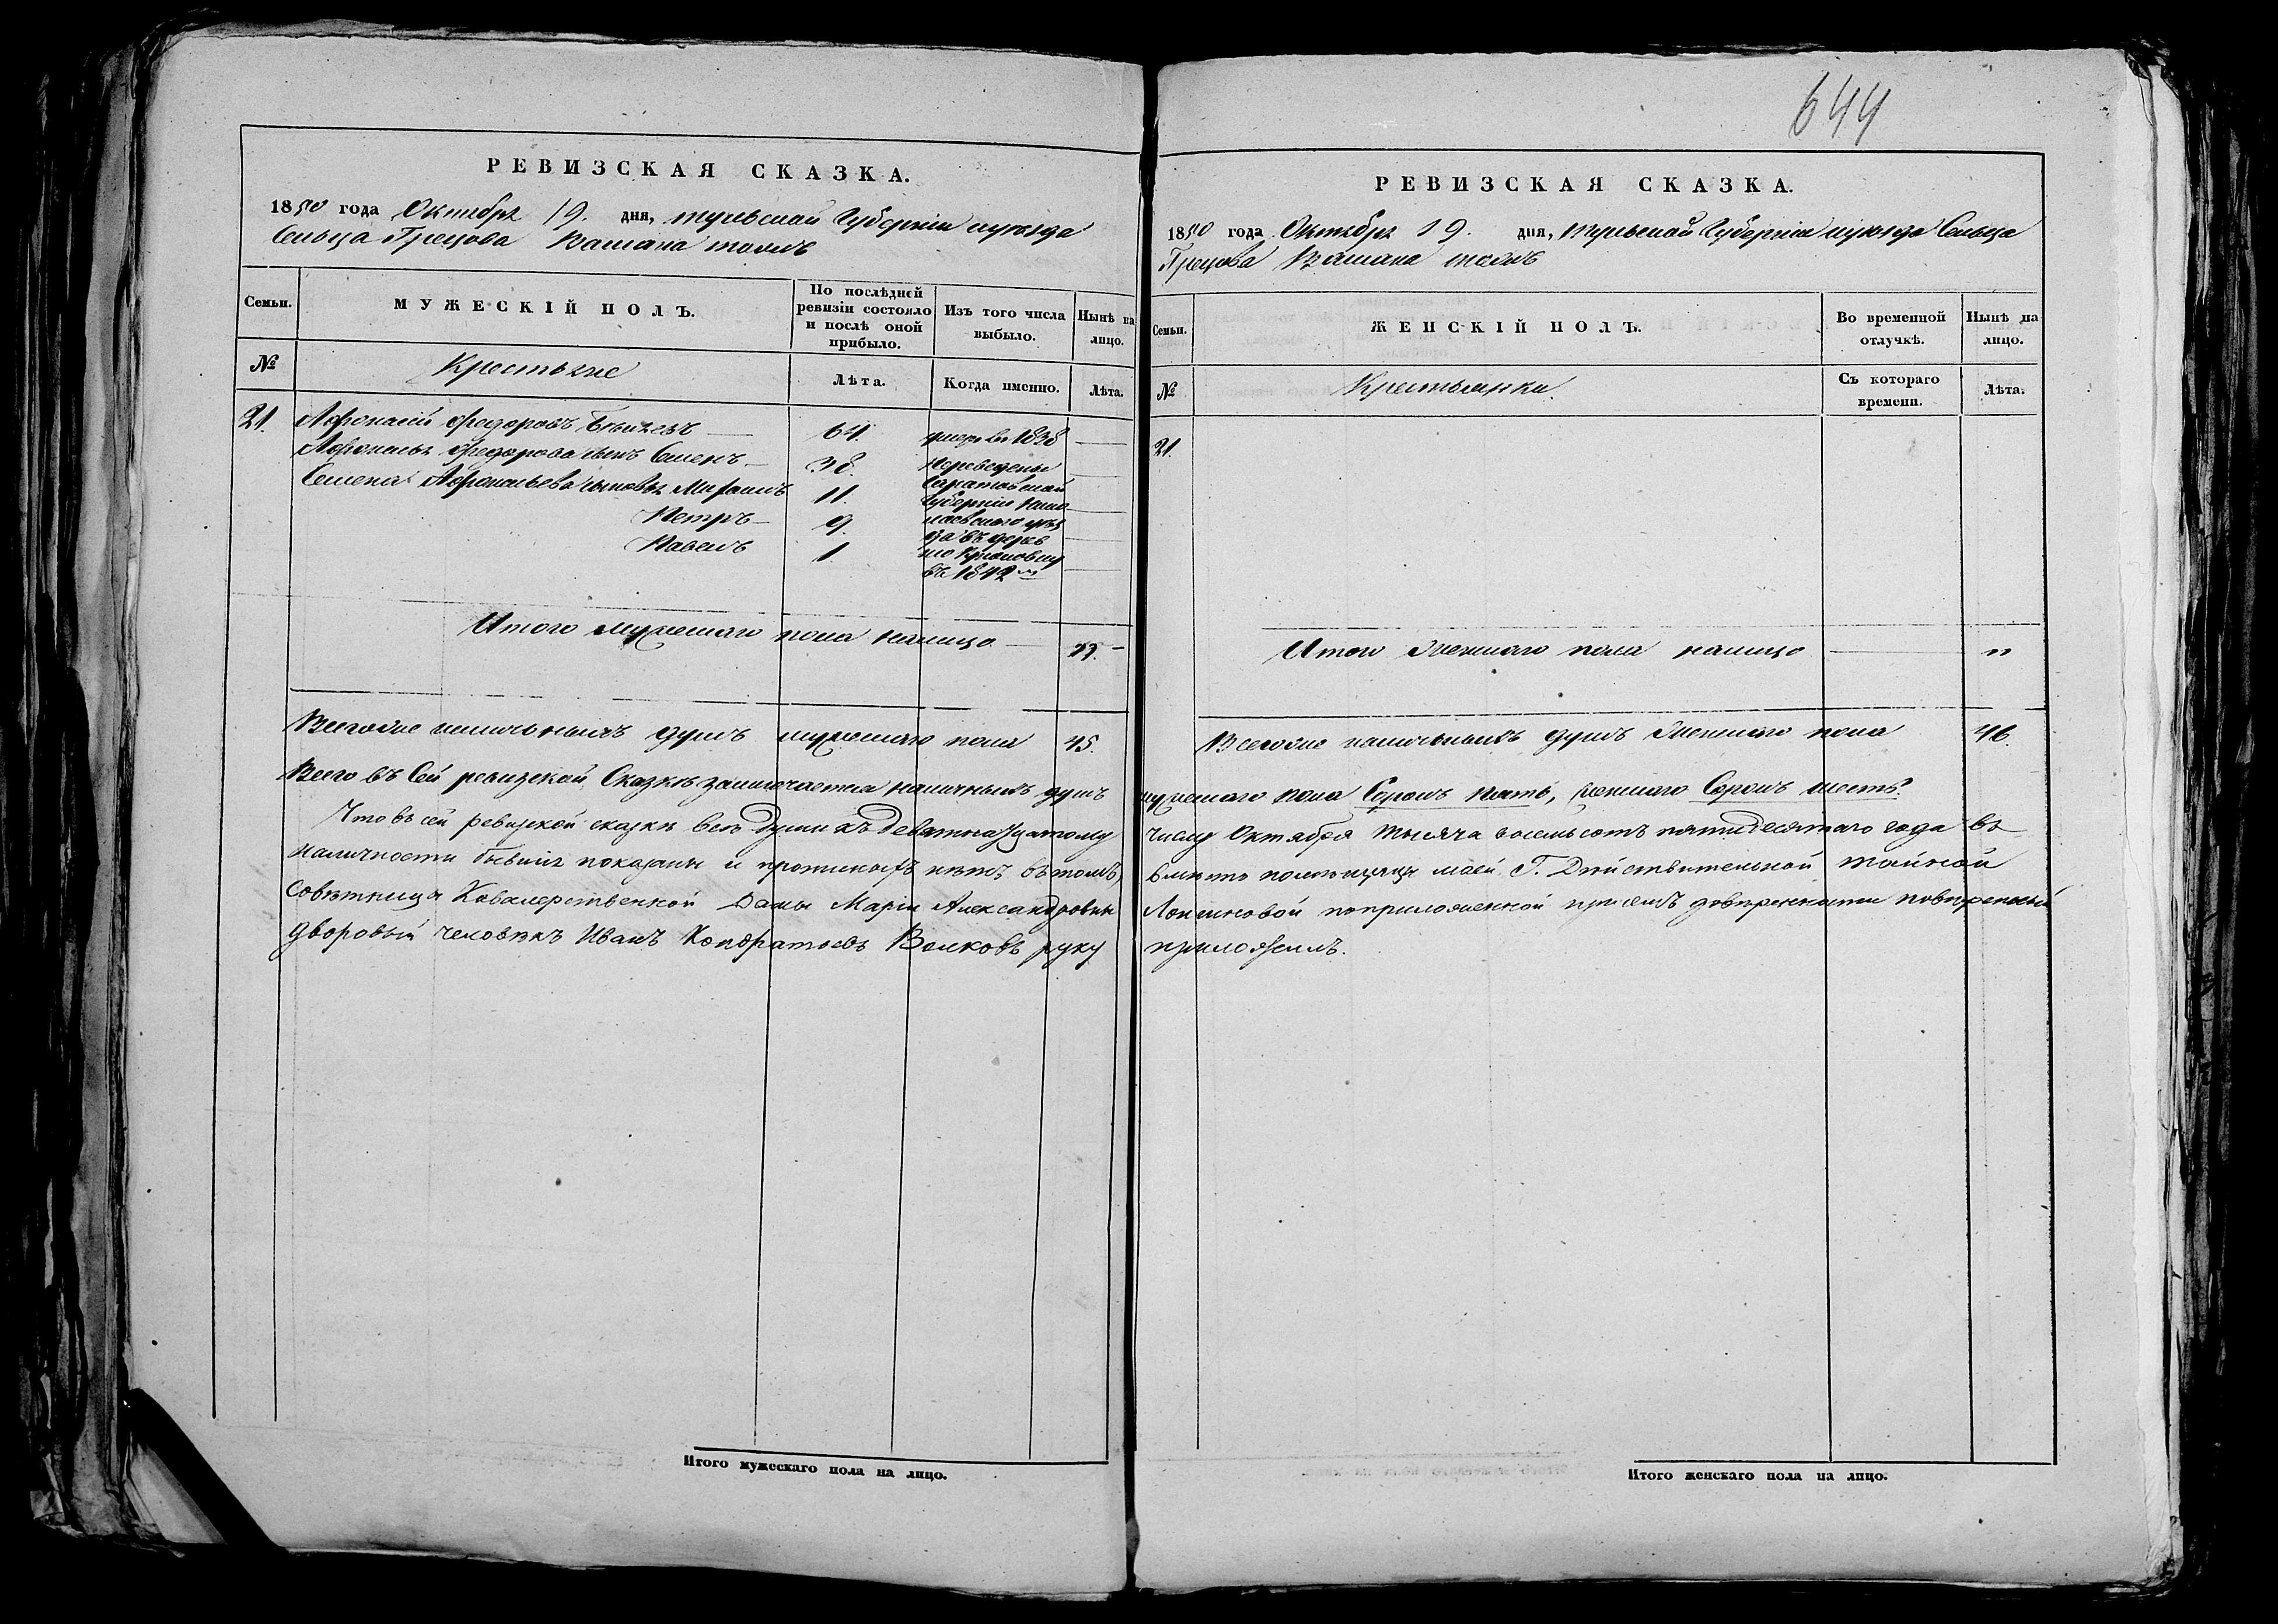 644
РЕВИЗСКАЯ СКАЗКА.
1850 года Октября 19. дня, Тульской Губерніи и уѣзда
Сельца Грецова Вашана тожъ
Семьи. МУЖЕСКІЙ ПОЛЪ. По послѣдней ревизіи состояло и послѣ оной прибыло. Изъ того числа выбыло. Нынѣ на лицо.
№ Крестьяне Лѣта. Когда именно. Лѣта.
21. Афонасій Федоровъ 64. умеръ въ 1838
Афонасья Федорова сынъ Семенъ 38. Переведены
Семена Афонасьева сыновья 11. Саратовской
Губерніи
Петръ 9.
Павелъ 1.
въ 1842 м
Итого мужескаго пола налицо
Всего же наличныхъ душъ мужескаго пола 45.
Всего въ Сей ревизской Сказкѣ заключается наличныхъ душъ
Что въ сей ревизской сказкѣ всѣ души къ девятнадцатому
наличности бывшія показаны и прописныхъ нѣтъ въ томъ,
Совѣтницы Кавалерственной Дамы Маріи Александровны
дворовый человѣкъ Иванъ Кондратьевъ Волковъ руку
Итого мужескаго пола на лицо.
РЕВИЗСКАЯ СКАЗКА.
1850 года Октября 19. дня, Тульской Губерніи и уѣзда Сельца
Грецова Вашана тожъ
Семьи. ЖЕНСКІЙ ПОЛЪ. Во временной отлучкѣ. Нынѣ на лицо.
№ Крестьянки. Съ котораго времени. Лѣта.
21.
Итого Женскаго пола налицо
Всего же наличныхъ душъ Женскаго пола 46.
мужескаго пола Сорокъ пять, женскаго Сорокъ шесть.
числу Октября тысяча восемьсотъ пятидесятаго года въ
вмѣсто помѣщицы моей Г. Дѣйствительной Тайной
по приложенной при семъ довѣренности повѣренный
приложилъ.
Итого женскаго пола на лицо.